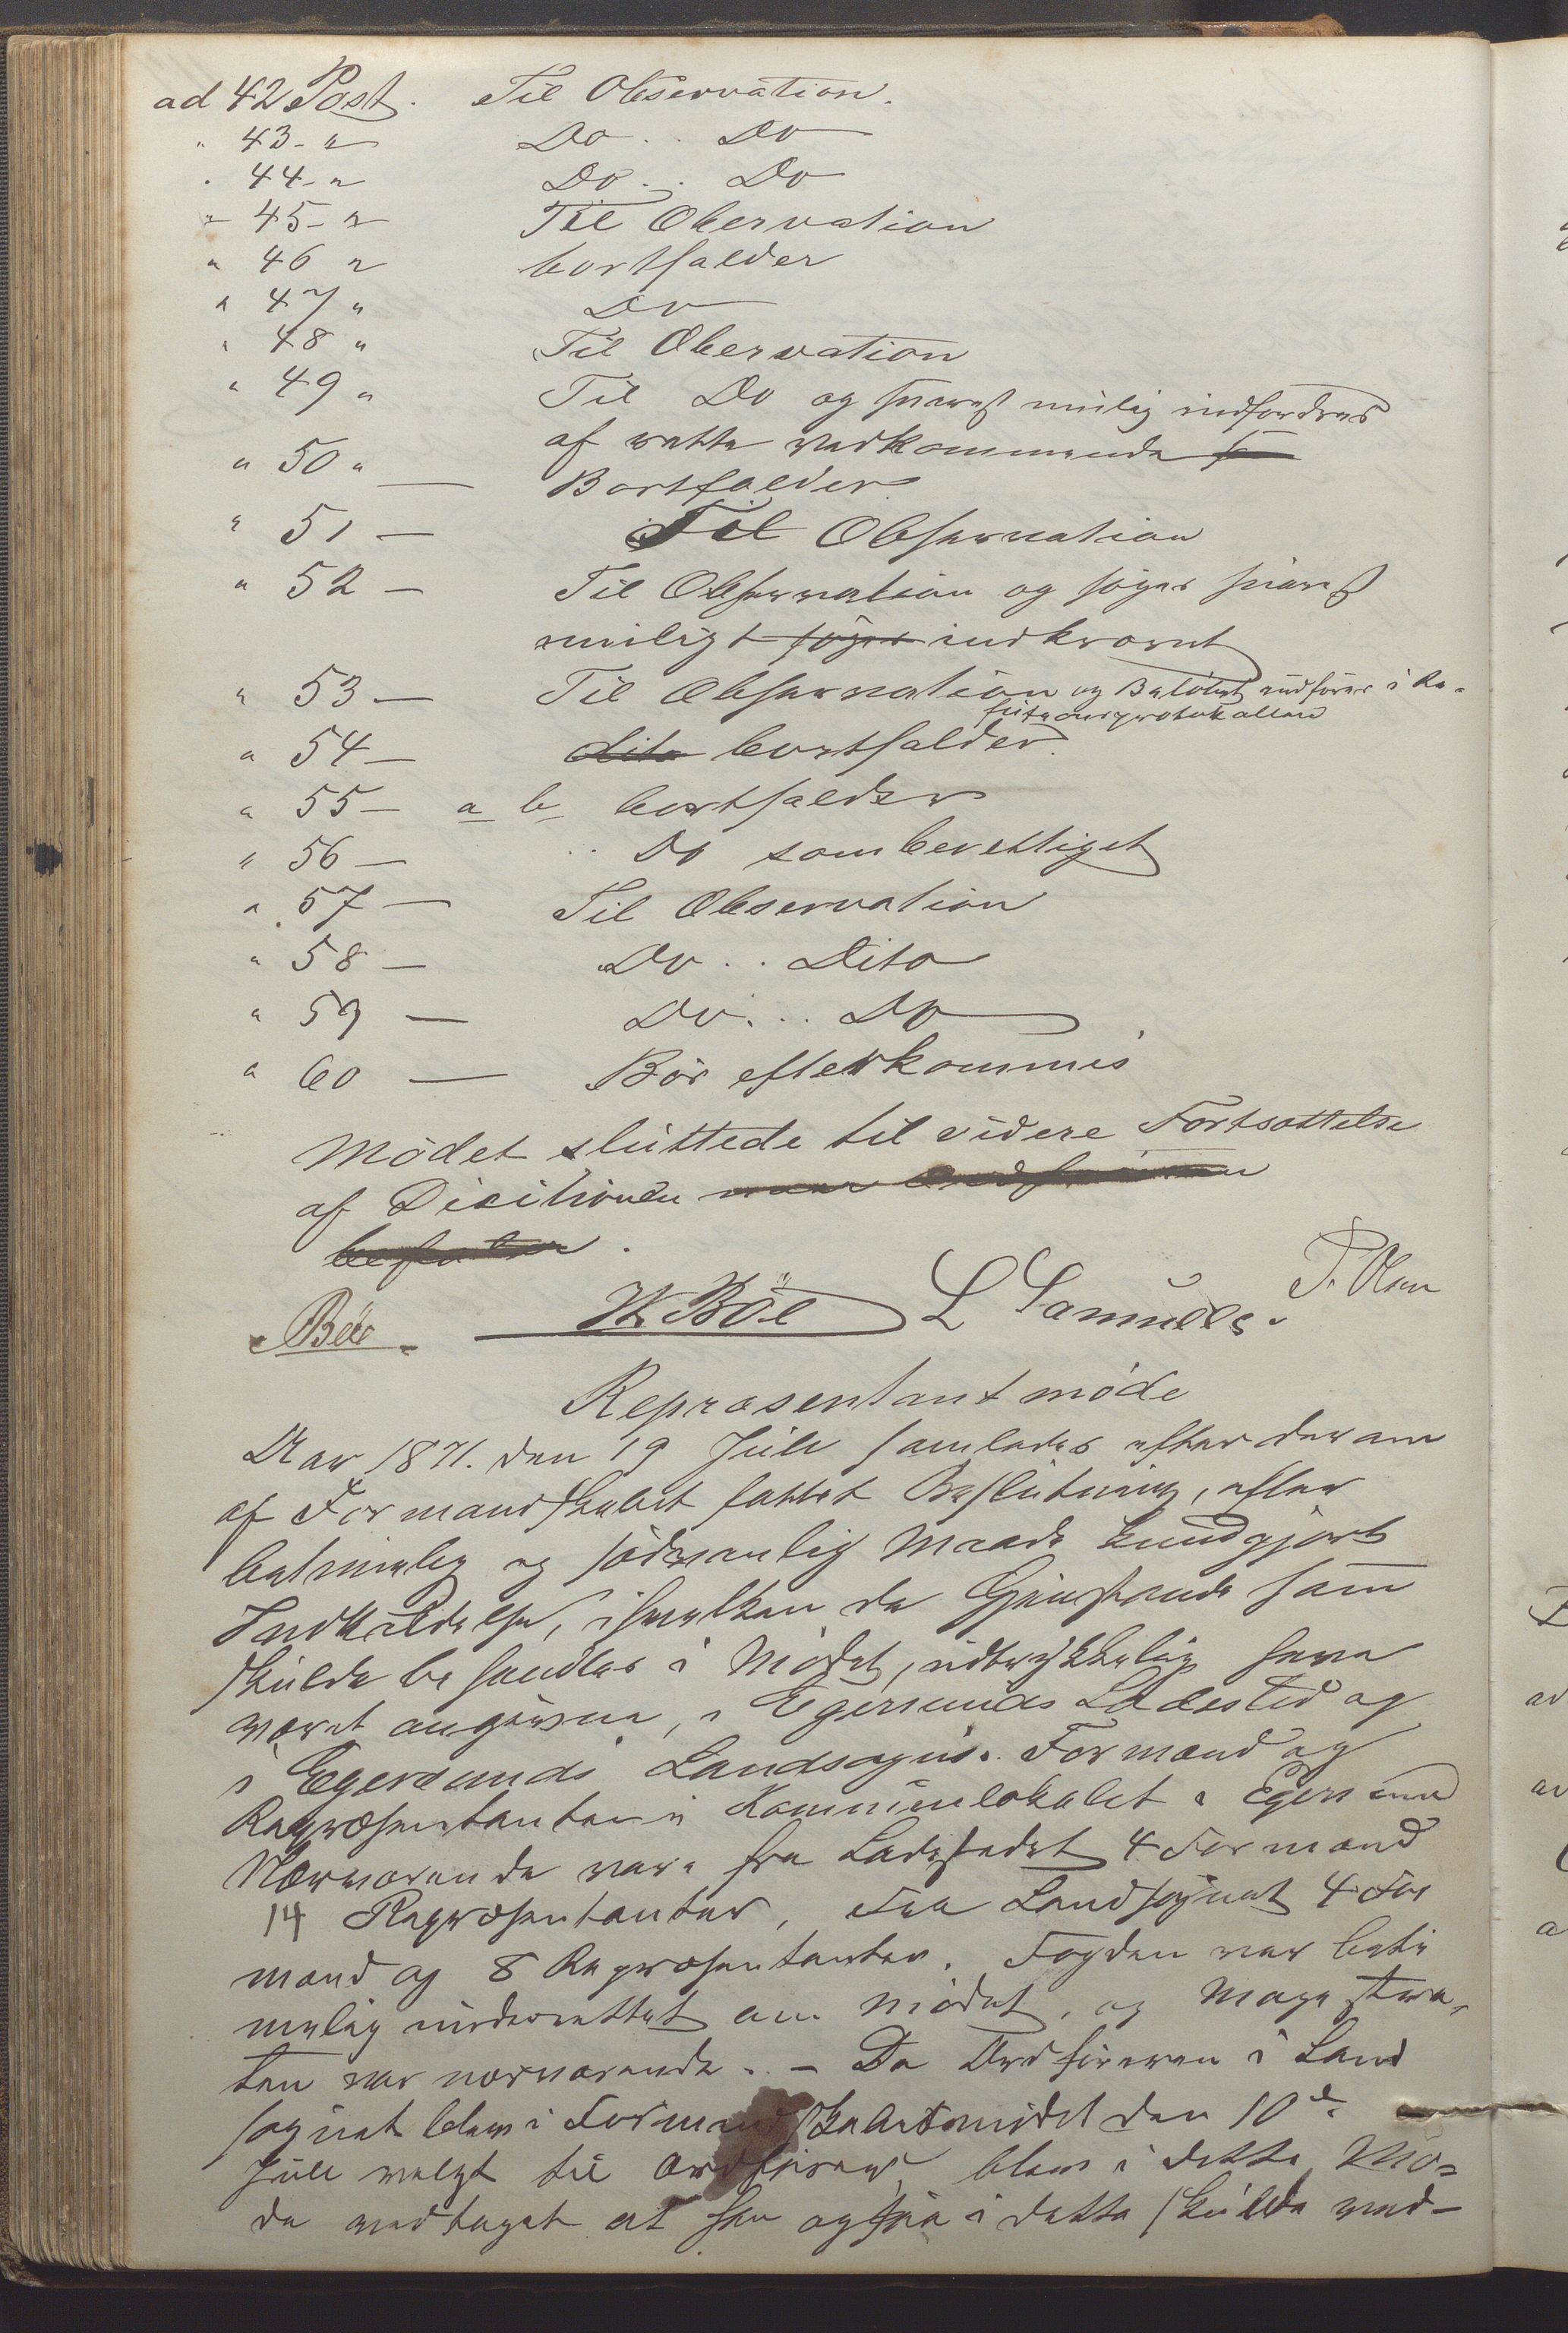 ad 42 Post. Til Observation.
" 43 - " Do . . Do
" 44 - " Do . . Do
" 45 - " Til Obervation
" 46 " bortfalder
" 47 " Do
" 48 " Til Obervation
" 49 " Til Do og snarest mulig indfordres
af rette vedkommende
" 50 " — Bortfalder
" 51 — Til Observation
" 52 — Til Observation og søges snarest
muligt søges indkrævet
" 53 — Til Observation og Beløbet indføres i Re-
stanceprotokollen
" 54 — dito bortfalder.
" 55 — a b bortfalder
" 56 — Do som berettiget
" 57 — Til Observation
" 58 — Do . . Dito
" 59 — Do . . . Do
" 60 — Bør efterkommes
Mødet sluttede til videre Fortsættelse
af Decitionen
P. Olsen
Böe W. Böe L Samuels.
Repræsentantmøde
Aar 1871. den 19 Juli samledes efter derom
af Formandskabet fattet Beslutning, efter
betimelig og sædvanlig Maade kundgjort
Indkaldelse, i hvilken de Gjenstande som
skulde behandles i Mødet, udtrykkelig have
været angivne, i Egersunds Ladested og
i Egersunds Landsogns. Formænd og
Repræsentanter i Kommunelokalet i Egersund
Nærværende vare fra Ladestedet 4 Formænd
14 Repræsentanter, fra Landsognet 4 For
mænd og 8 Repræsentanter. Fogden var beti
melig underrettet om Mødet, og Magistra-
ten var nærværende. — Da Ordføreren i Land
sognet blev i Formandskabsmødet den 10de
Juli valgt til Ordfører, blev i dette Mø-
de vedtaget at han også i dette skulde ved-